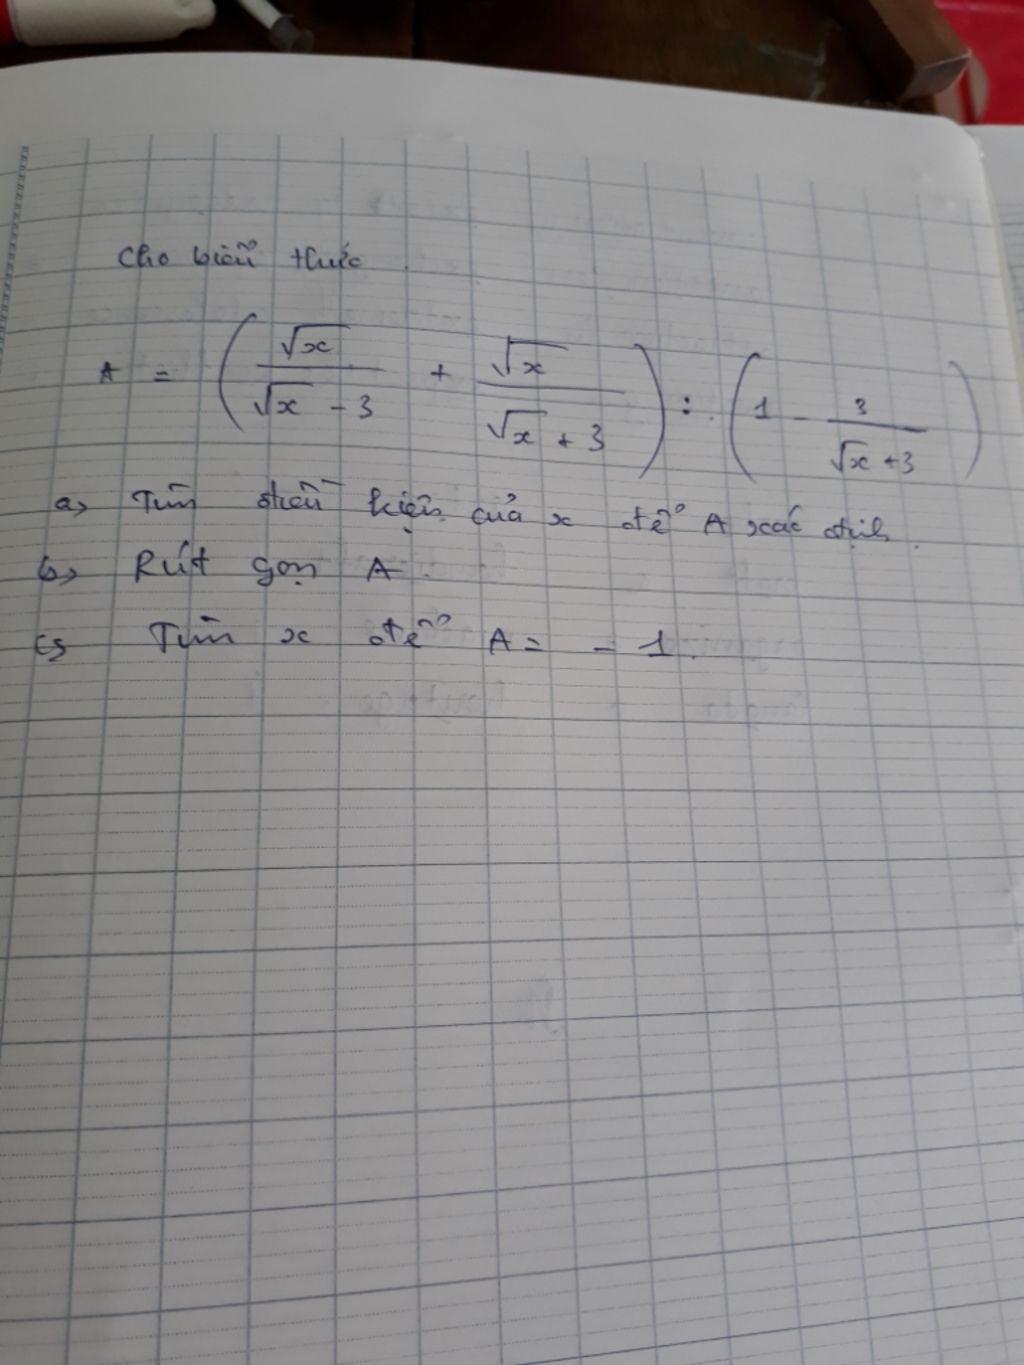 Cho biểu thức.
A = ( √x / (√x - 3) + √x / (√x + 3) ) : ( 1 - 3 / (√x + 3) )
a, Tìm điều kiện của x để A xác định.
b, Rút gọn A.
c, Tìm x để A = - 1.